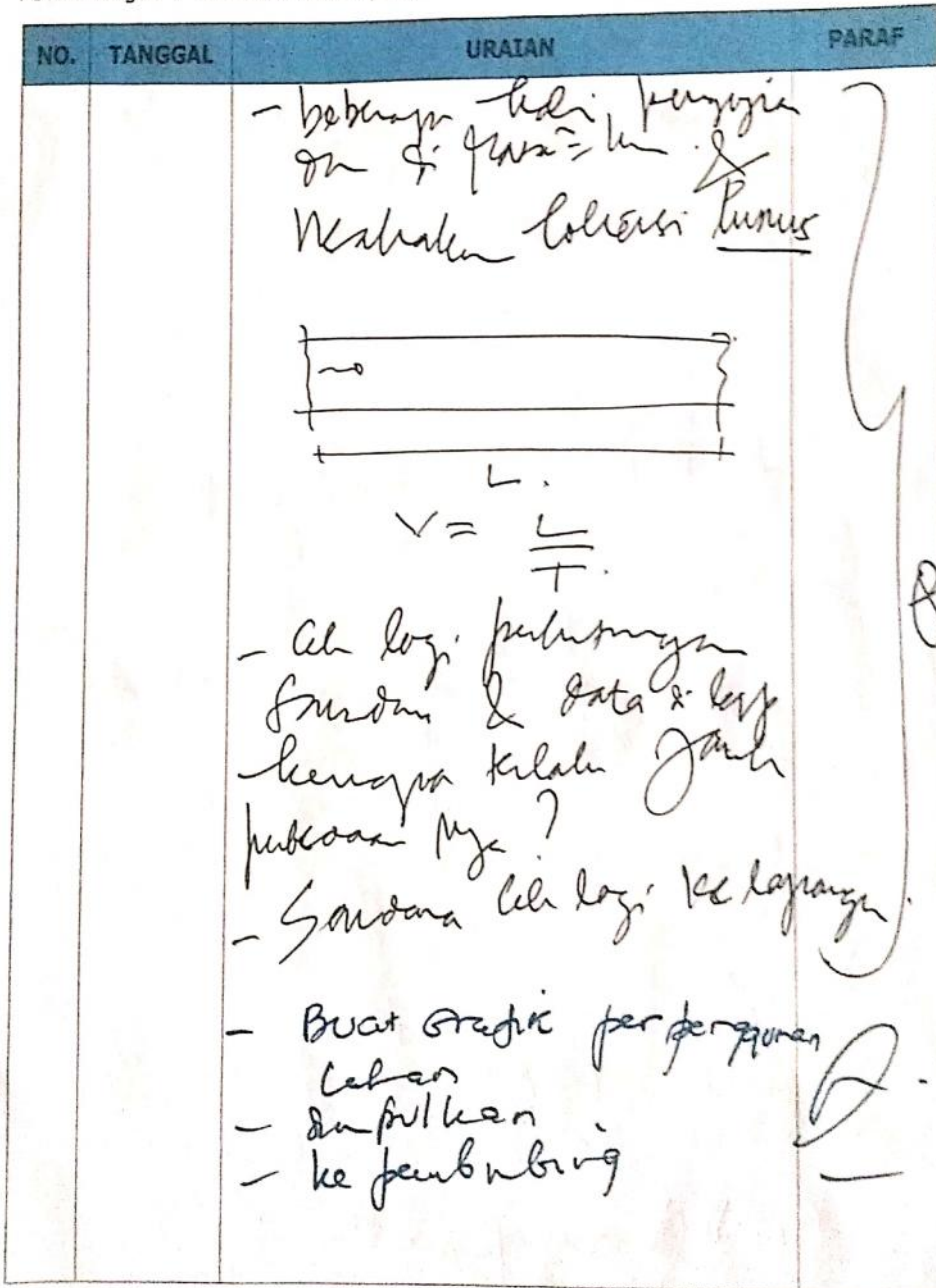 NO. TANGGAL URAIAN PARAF
- beberapa kali pengujian
&
lokasi lurus
L.
V = L
T.
- Cek lagi perhitungan
Saudara & data di lapp
kenapa terlalu jauh
perbedaan nya?
- Saudara Cek lagi ke lapangan.
- Buat Grafik per penggunaan
Lahan
- Simpulkan
- ke pembimbing